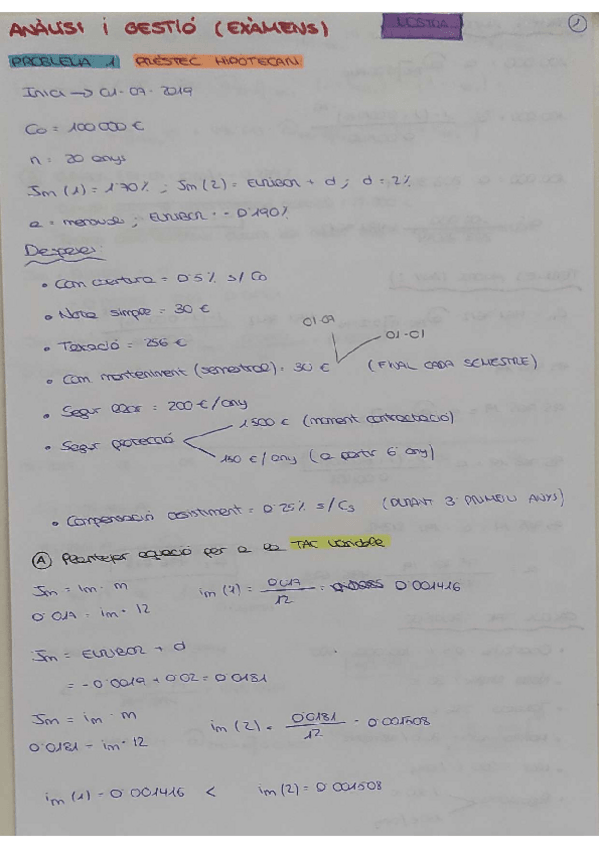 ANÀLISI i GESTIÓ (EXÀMENS)
1
PROBLEMA 1 PRÉSTEC HIPOTECARI
Inici → 01·07·2019
Co = 100 000 €
n = 20 anys
Jm (1) = 1'70% ; Jm (2) = EURIBOR + d ; d = 2%
a = mensual ; EURIBOR = -0'190%
Despeses:
• Com obertura = 0'5% s/ Co
• Nota simple = 30 €
• Taxació = 256 €
01·07
01·01
• Com manteniment (semestral) = 30 € (FINAL CADA SEMESTRE)
• Segur llar = 200 €/any
1500 € (moment contractació)
• Segur protecció
150 €/any (a partir 6 any)
• Compensació desistiment = 0'25% s/ C3 (DURANT 3 PRIMERS ANYS)
A Plantejar equació per a la TAE variable
Jm = im · m
im (1) = 0'017 / 12 = 0'001416
0'017 = im · 12
Jm = EURIBOR + d
= -0'0019 + 0'02 = 0'0181
Jm = im · m
im (2) = 0'0181 / 12 = 0'001508
0'0181 = im · 12
im (1) = 0'001416 < im (2) = 0'001508